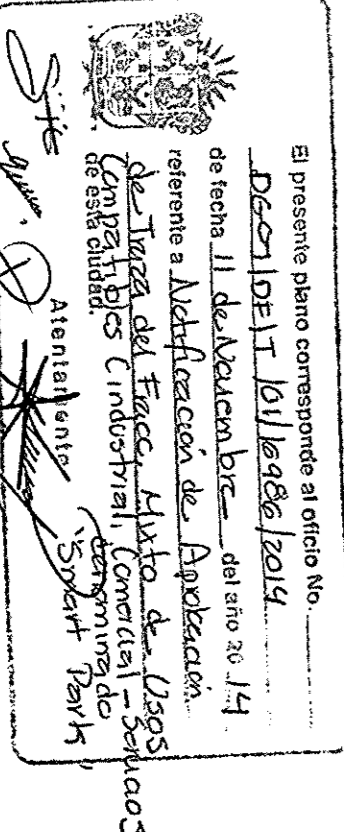 El presente plano corresponde al oficio No.
DGOI/DEIT/01/6986/2014
de fecha 11 de Noviembre del año 2014
referente a Notificación de Aprobación
de Traza del Fracc. Mixto de Usos
Compatibles Cindustrial, Comercial - Servicios
de esta ciudad. denominado
Atentamente "Smart Park",